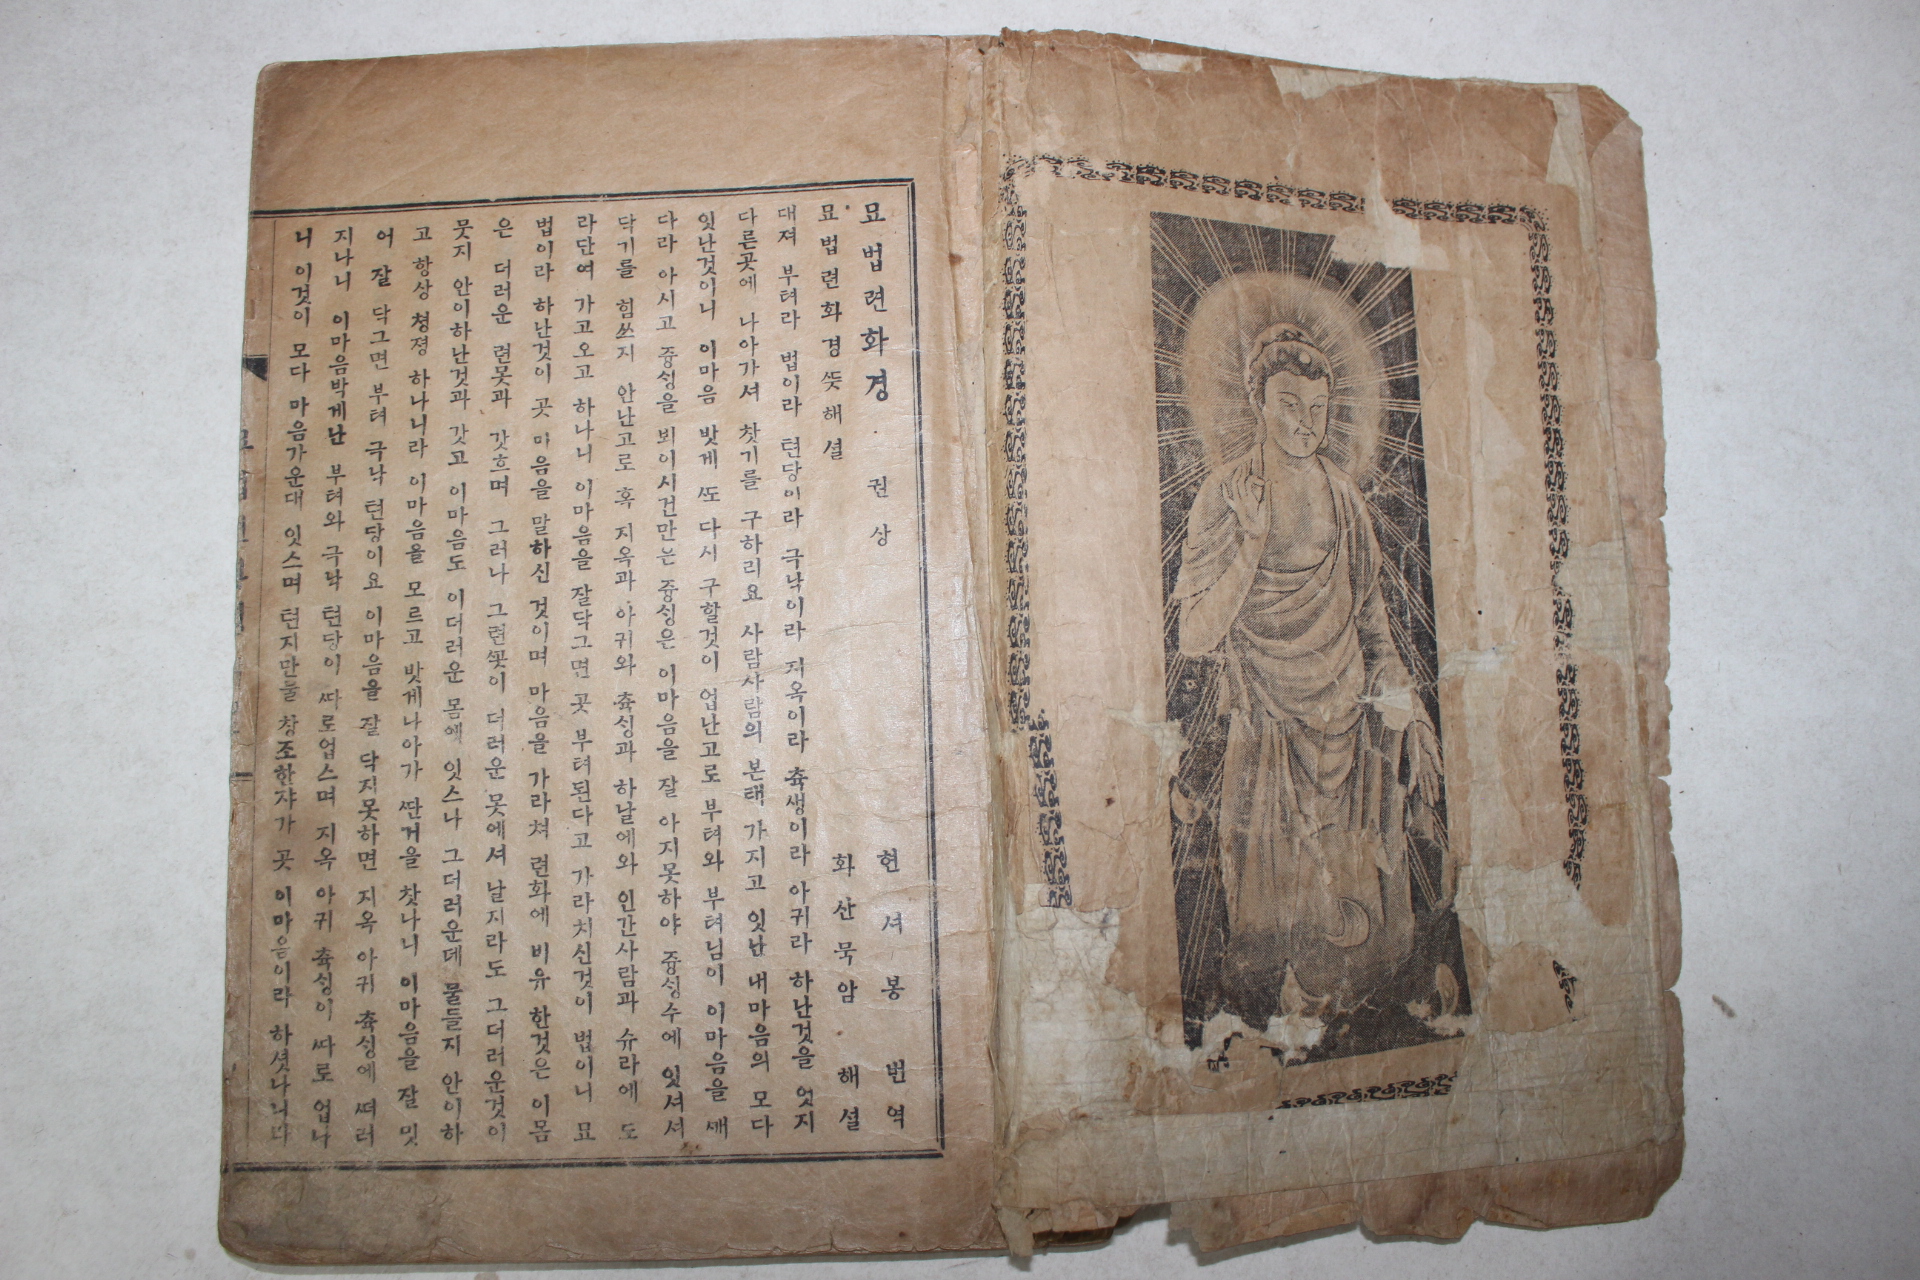 묘법련화경 권상 현셔봉 번역
묘법련화경ᄯᅳᆺ해셜 화산묵암 해셜
대져 부텨라 법이라 텬당이라 극낙이라 지옥이라 츅생이라 아귀라 하난것을 엇지
다른곳에 나아가셔 찻기를 구하리요 사람사람의 본태 가지고 잇난 내마음의 모다
잇난것이니 이마음 밧게 ᄯᅩ 다시 구할것이 업난고로 부텨와 부텨님이 이마음을 ᄭᅢ
다라 아시고 즁ᄉᆡᆼ을 뵈이시건만는 즁ᄉᆡᆼ은 이마음을 잘 아지못하야 즁ᄉᆡᆼ수에 잇셔셔
닥기를 힘쓰지 안난고로 혹 지옥과 아귀와 츅ᄉᆡᆼ과 하날에와 인간사람과 슈라에 도
라단여 가고오고 하나니 이마음을 잘닥그면 곳 부텨된다고 가라치신것이 법이니 묘
법이라 하난것이 곳 마음을 말하신 것이며 마음을 가라쳐 련화에 비유 한것은 이몸
은 더러운 련못과 갓흐며 그러나 그련ᄭᅩᆺ이 더러운 못에셔 날지라도 그더러운것이
뭇지 안이하난것과 갓고 이마음도 이더러운 몸에 잇스나 그더러운데 물들지 안이하
고 항상 쳥졍 하나니라 이마음을 모르고 밧게나아가 ᄯᅡᆫ거을 찻나니 이마음을 잘 밋
어 잘 닥그면 부텨 극낙 텬당이요 이마음을 잘 닥지못하면 지옥 아귀 츅ᄉᆡᆼ에 ᄯᅥ러
지나니 이마음박게난 부텨와 극낙 텬당이 ᄯᅡ로업스며 지옥 아귀 츅ᄉᆡᆼ이 ᄯᅡ로 업나
니 이것이 모다 마음가운대 잇스며 텬지만물 창조한쟈가 곳 이마음이라 하셧나니다